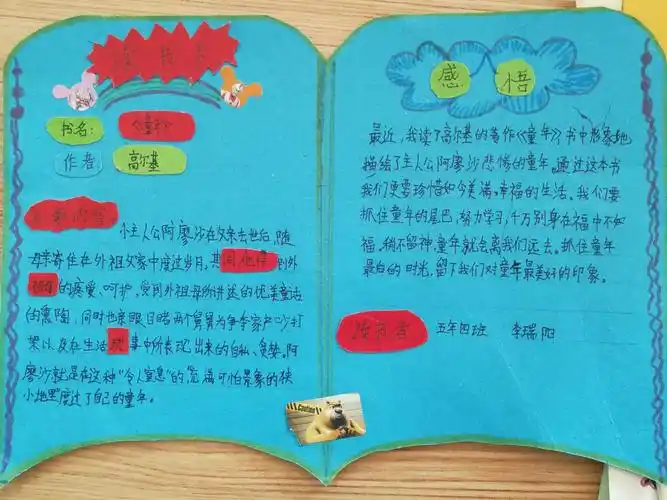 读书卡
书名：
《童年》
作者
高尔基
主要内容
小主人公阿廖沙在父亲去世后，随
母亲寄住在外祖父家中度过岁月，其间他得到外
祖母的疼爱、呵护，受到外祖母所讲述的优美童话
的熏陶，同时也亲眼目睹两个舅舅为争夺家产
架以及在生活琐事中所表现出来的自私、贪婪。阿
廖沙就是在这种“令人窒息”的充满可怕景象的狭
小地里度过了自己的童年。
感悟
最近，我读了高尔基的著作《童年》，书中形象地
描绘了主人公阿廖沙悲惨的童年。通过这本书
我们更要珍惜如今美满、幸福的生活。我们要
抓住童年的尾巴，努力学习，千万别身在福中不知
福，稍不留神，童年就会离我们远去。抓住童年
最白的时光，留下我们对童年最美好的印象。
五年四班 李瑞阳
Caution